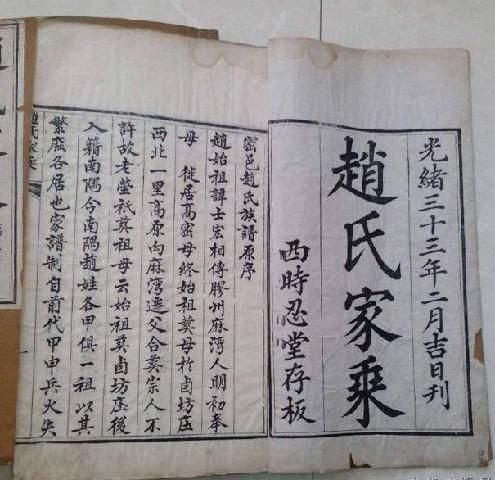 光緒三十三年二月吉日刊
趙氏家乘
西時忍堂存板
密邑趙氏族譜原序
趙始祖諱士宏相傳膠州麻灣人明初奉
母徙居高密母終始祖葬母於卣坊庄
西北一里高原向麻灣遷父合葬宗人不
許故老塋祇葬祖母云始祖葬卣坊庄後
入籍南隅今南隅趙姓各甲俱一祖以其
繁庶各居也家譜制自前代甲申兵火失
趙氏家乘